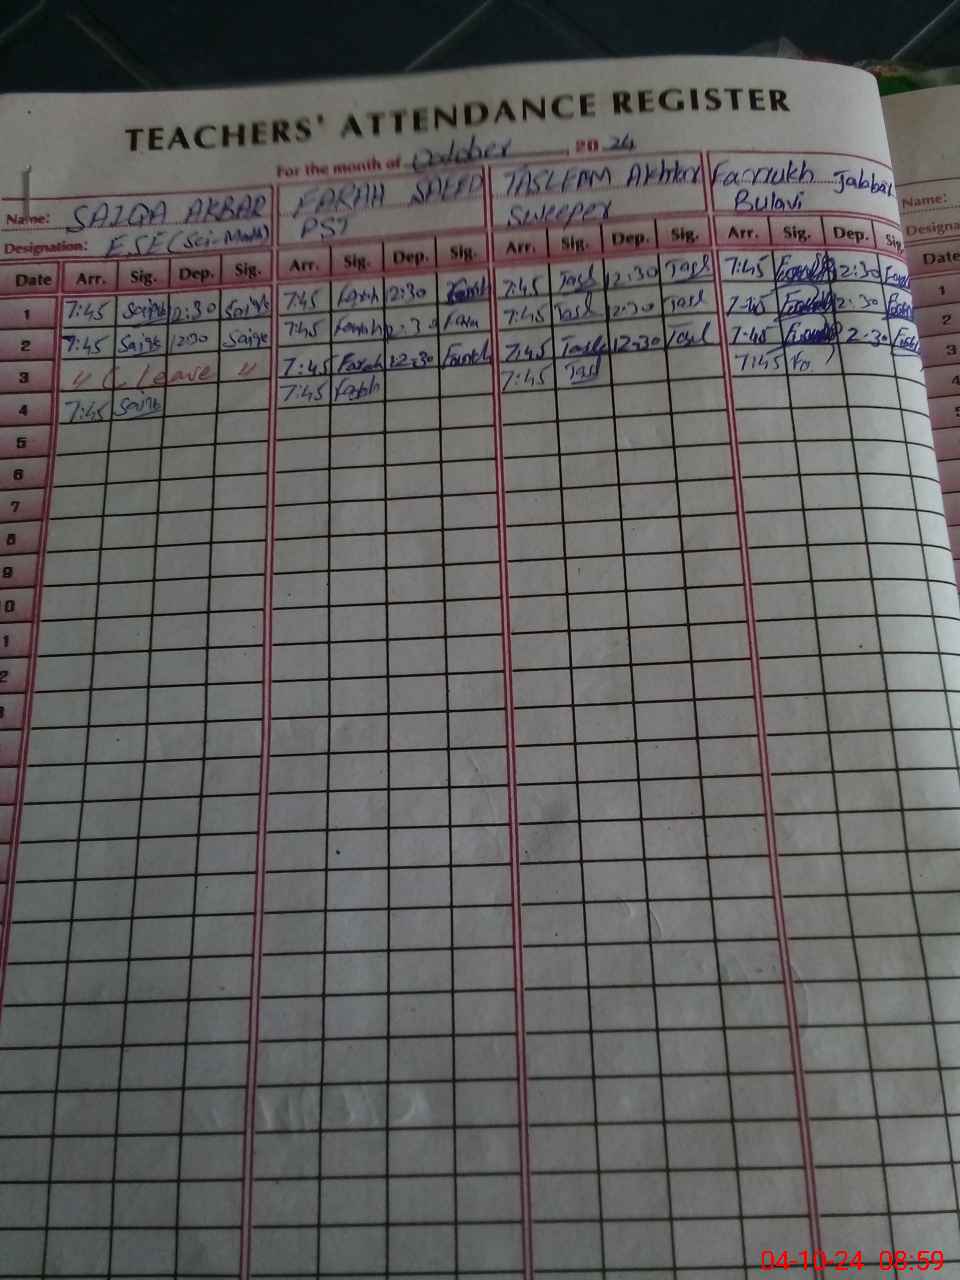 TEACHERS' ATTENDANCE REGISTER
For the month of October 2024
Name: SAIQA AKBAR FARAH SAEED TASLEEM Akhtar Farrukh Jalabat Name:
Designation: ESE (Sci-Math) PST Sweeper Bulavi Designa
Date Arr. Sig. Dep. Sig. Arr. Sig. Dep. Sig. Arr. Sig. Dep. Sig. Arr. Sig. Dep. Sig. Date
1 7:45 Saiqa 12:30 Saiqa 7:45 Farah 12:30 Farah 7:45 Tasl 12:30 Tasl 7:45 2:30 1
2 7:45 Saiqa 12:30 Saiqa 7:45 Farah 12:30 Fara 7:45 Tasl 2:30 Tasl 7:45 2:30 2
3 " C leave " 7:45 Farah 12:30 Farah 7:45 Tasl 12:30 Tasl 7:45 2:30 3
4 7:45 Saiqa 7:45 Farah 7:45 Tasl 7:45 Fa 4
5
6
7
8
9
0
1
2
3
04-10-24 08:59